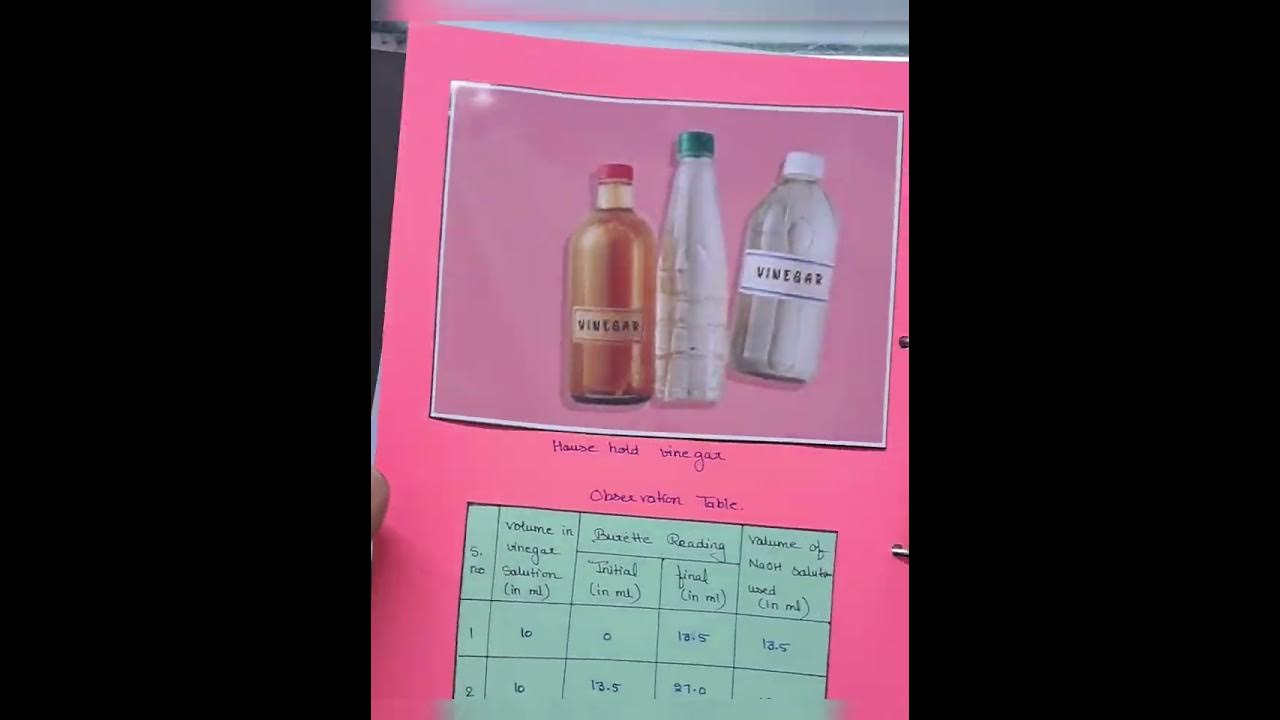 VINEGAR
VINEGAR
House hold vinegar
Observation Table.
S. no
Volume in vinegar Solution (in ml)
Burette Reading
Initial (in ml)
final (in ml)
Volume of NaOH Solution used (in ml)
1 10 0 13.5 13.5
2 10 13.5 27.0